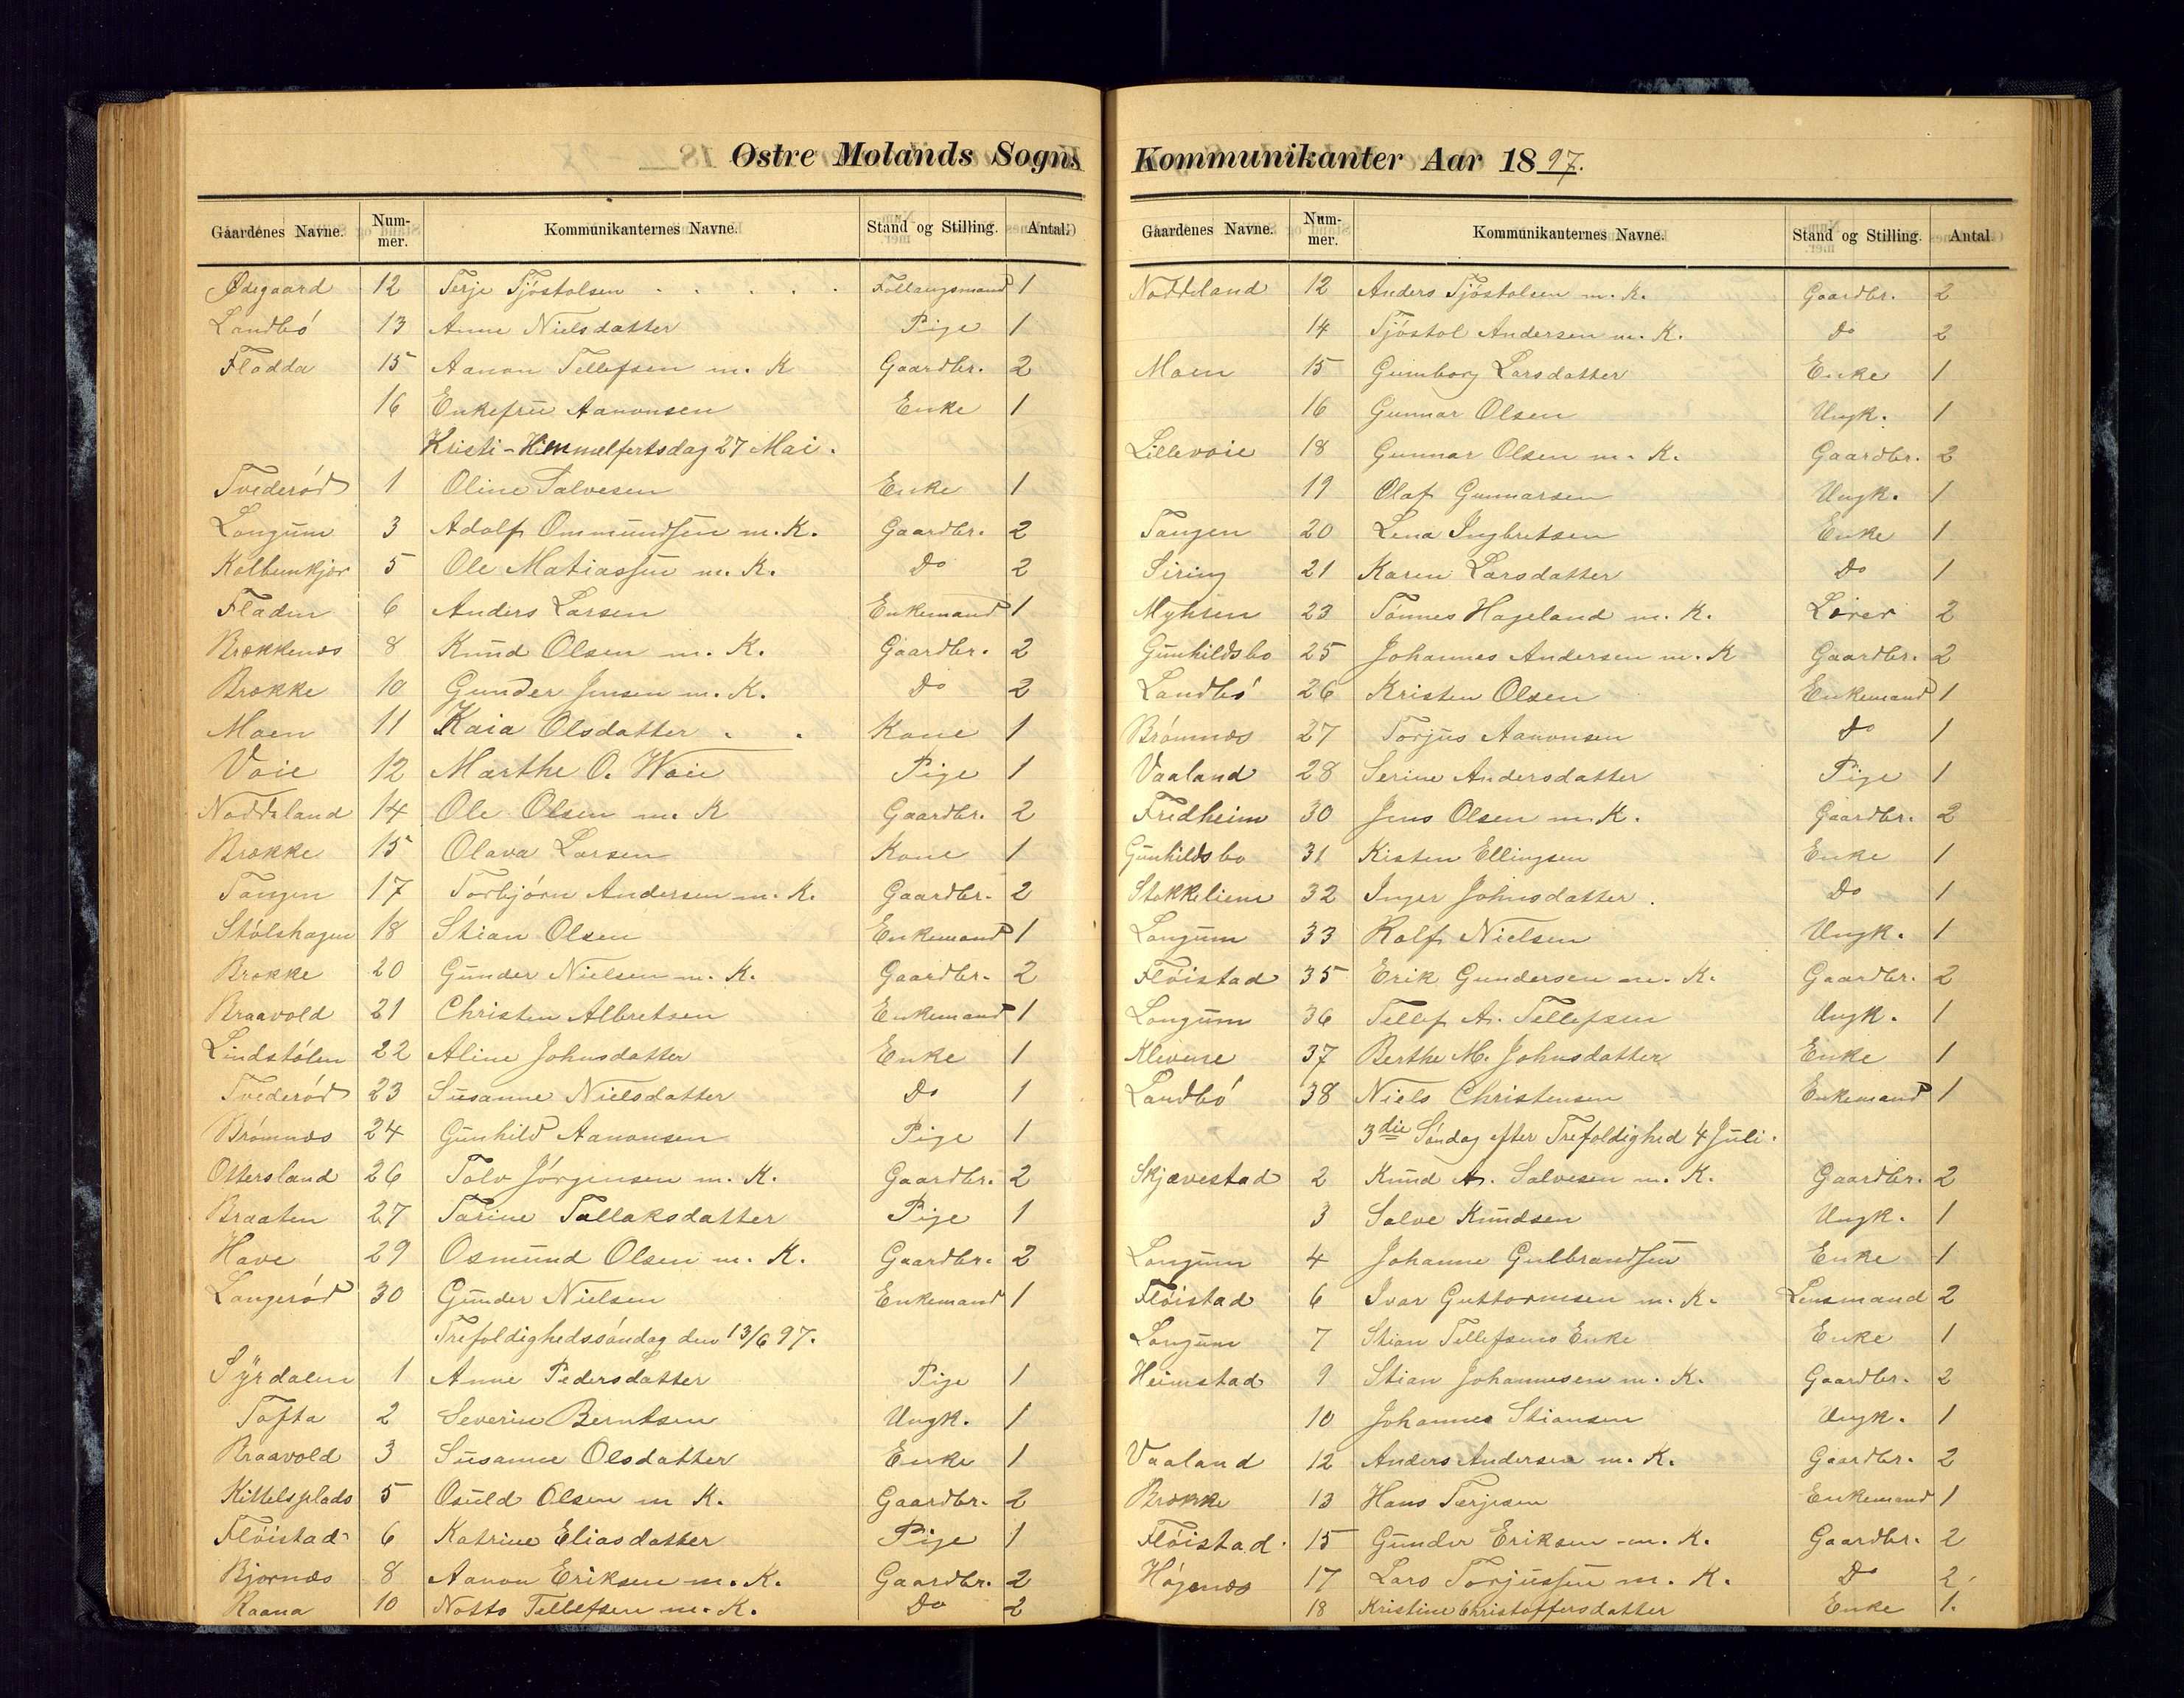 Østre Molands Sogns
Gaardenes Navne. Num-mer. Kommunikanternes Navne. Stand og Stilling. Antal.
Ødegaard 12 Terje Tjøstolsen . . . . . Follaugsmand 1
Landbø 13 Anne Nielsdatter Pige 1
Flødda 15 Aanon Tellefsen m. K Gaardbr. 2
16 Enkefru Aanonsen Enke 1
Kristi-Himmelfertsdag 27 Mai.
Tvederød 1 Oline Salvesen Enke 1
Longum 3 Adolf Ommundsen m. K. Gaardbr. 2
Kolbunkjør 5 Ole Matiassen m. K. Do 2
Fladen 6 Anders Larsen Enkemand 1
Brækkenæs 8 Knud Olsen m. K. Gaardbr. 2
Brække 10 Gunder Jensen m. K. Do 2
Moen 11 Kaia Olsdatter . . Kone 1
Voie 12 Marthe O. Woie Pige 1
Noddeland 14 Ole Olsen m. K Gaardbr. 2
Brække 15 Olava Larsen Kone 1
Tangen 17 Torbjørn Andersen m. K. Gaardbr. 2
Stølshagen 18 Stian Olsen Enkemand 1
Brække 20 Gunder Nielsen m. K. Gaardbr. 2
Braavold 21 Christen Albretsen Enkemand 1
Lindstølen 22 Aline Johnsdatter Enke 1
Tvederød 23 Susanne Nielsdatter Do 1
Brømnæs 24 Gunhild Aanonsen Pige 1
Ottersland 26 Talv Jørgensen m. K. Gaardbr. 2
Braaten 27 Tarine Tallaksdatter Pige 1
Have 29 Osmund Olsen m. K. Gaardbr. 2
Langerød 30 Gunder Nielsen Enkemand 1
Trefoldighedssøndag den 13/6 97.
Syrdalen 1 Anne Pedersdatter Pige 1
Tofta 2 Severin Berntsen Ungk. 1
Braavold 3 Susanne Olsdatter Enke 1
Kittelsplads 5 Osuld Olsen m K. Gaardbr. 2
Fløistad 6 Katrine Eliasdatter Pige 1
Bjørnæs 8 Aanon Eriksen m. K. Gaardbr. 2
Raana 10 Notto Tellefsen m. K. Do 2
Kommunikanter Aar 1897.
Gaardenes Navne. Num-mer. Kommunikanternes Navne. Stand og Stilling. Antal
Noddeland 12 Anders Tjøstolsen m. K. Gaardbr. 2
14 Tjøstol Andersen m. K. Do 2
Moen 15 Gunborg Larsdatter Enke 1
16 Gunnar Olsen Ungk. 1
Lillevoie 18 Gunnar Olsen m. K. Gaardbr. 2
19 Olaf Gunnarsen Ungk. 1
Tangen 20 Lena Ingbretsen Enke 1
Siring 21 Karen Larsdatter Do 1
Myhren 23 Tønnes Hageland m. K. Lærer 2
Gunhildsbo 25 Johannes Andersen m. K Gaardbr. 2
Landbø 26 Kristen Olsen Enkemand 1
Brømnæs 27 Torjus Aanonsen Do 1
Vaaland 28 Serine Andersdatter Pige 1
Fredheim 30 Jens Olsen m. K. Gaardbr. 2
Gunhildsbo 31 Kisten Ellingsen Enke 1
Stokkeliene 32 Inger Johnsdatter . Do 1
Longum 33 Rolf Nielsen Ungk. 1
Fløistad 35 Erik Gundersen m. K. Gaardbr. 2
Longum 36 Tellef A. Tellefsen Ungk. 1
Klevene 37 Berthe M. Johnsdatter Enke 1
Landbø 38 Niels Christensen Enkemand 1
3die Søndag efter Trefoldighed 4 Juli.
Skjævestad 2 Knud A. Salvesen m. K. Gaardbr. 2
3 Salve Knudsen Ungk. 1
Longum 4 Johanne Gulbrandsen Enke 1
Fløistad 6 Ivar Guttormsen m. K. Lensmand 2
Longum 7 Stian Tellefsens Enke Enke 1
Heimstad 9 Stian Johannesen m. K. Gaardbr. 2
10 Johannes Stiansen Ungk. 1
Vaaland 12 Anders Andersen m. K. Gaardbr. 2
Brække 13 Hans Terjesen Enkemand 1
Fløistad. 15 Gunder Eriksen m. K. Gaardbr. 2
Høgenæs 17 Lars Torjussen m. K. Do 2
18 Kristine Christoffersdatter Enke 1.